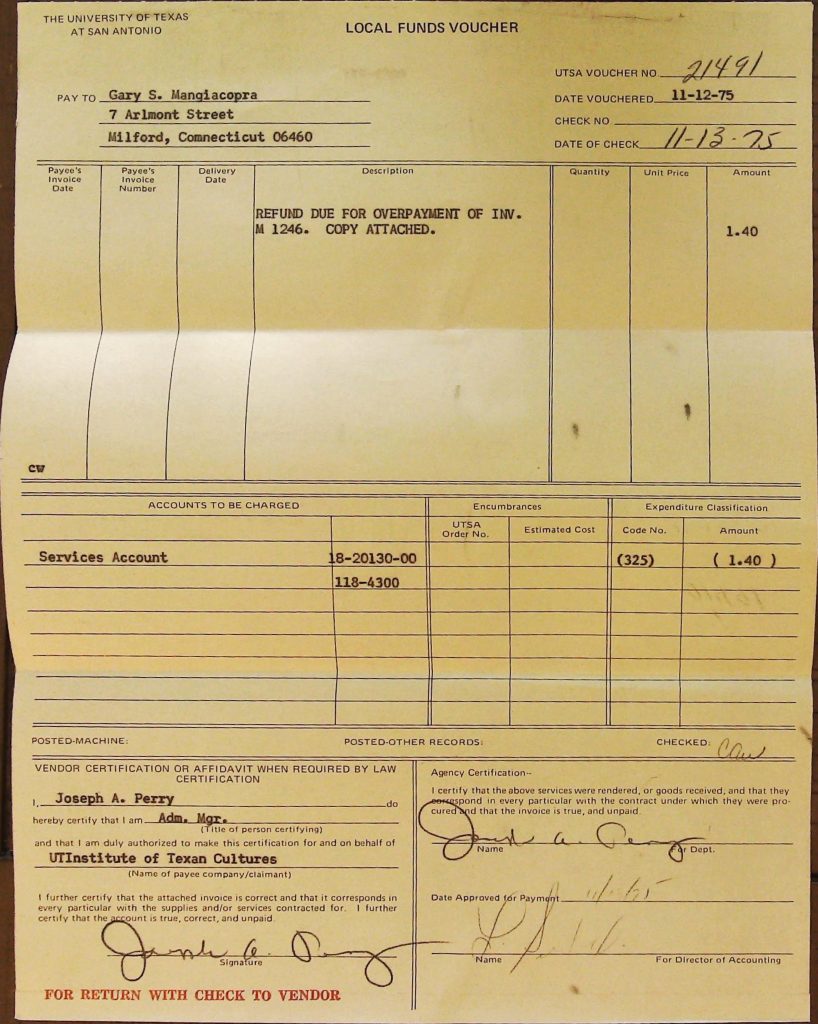 THE UNIVERSITY OF TEXAS
AT SAN ANTONIO
LOCAL FUNDS VOUCHER
UTSA VOUCHER NO. 21491
PAY TO Gary S. Mangiacopra
DATE VOUCHERED 11-12-75
7 Arlmont Street
CHECK NO.
Milford, Connecticut 06460
DATE OF CHECK 11-13-75
Payee's Invoice Date
Payee's Invoice Number
Delivery Date
Description
Quantity
Unit Price
Amount
REFUND DUE FOR OVERPAYMENT OF INV.
M 1246. COPY ATTACHED. 1.40
CW
ACCOUNTS TO BE CHARGED
Encumbrances
Expenditure Classification
UTSA Order No.
Estimated Cost
Code No.
Amount
Services Account 18-20130-00 (325) ( 1.40 )
118-4300
POSTED-MACHINE: POSTED-OTHER RECORDS: CHECKED: CAW
VENDOR CERTIFICATION OR AFFIDAVIT WHEN REQUIRED BY LAW
CERTIFICATION
I, Joseph A. Perry do
hereby certify that I am Adm. Mgr.
(Title of person certifying)
and that I am duly authorized to make this certification for and on behalf of
UTInstitute of Texan Cultures
(Name of payee company/claimant)
I further certify that the attached invoice is correct and that it corresponds in
every particular with the supplies and/or services contracted for. I further
certify that the account is true, correct, and unpaid.
Joseph A. Perry
Signature
FOR RETURN WITH CHECK TO VENDOR
Agency Certification--
I certify that the above services were rendered, or goods received, and that they
correspond in every particular with the contract under which they were pro-
cured and that the invoice is true, and unpaid.
Joseph A. Perry
Name For Dept.
Date Approved for Payment
Name For Director of Accounting